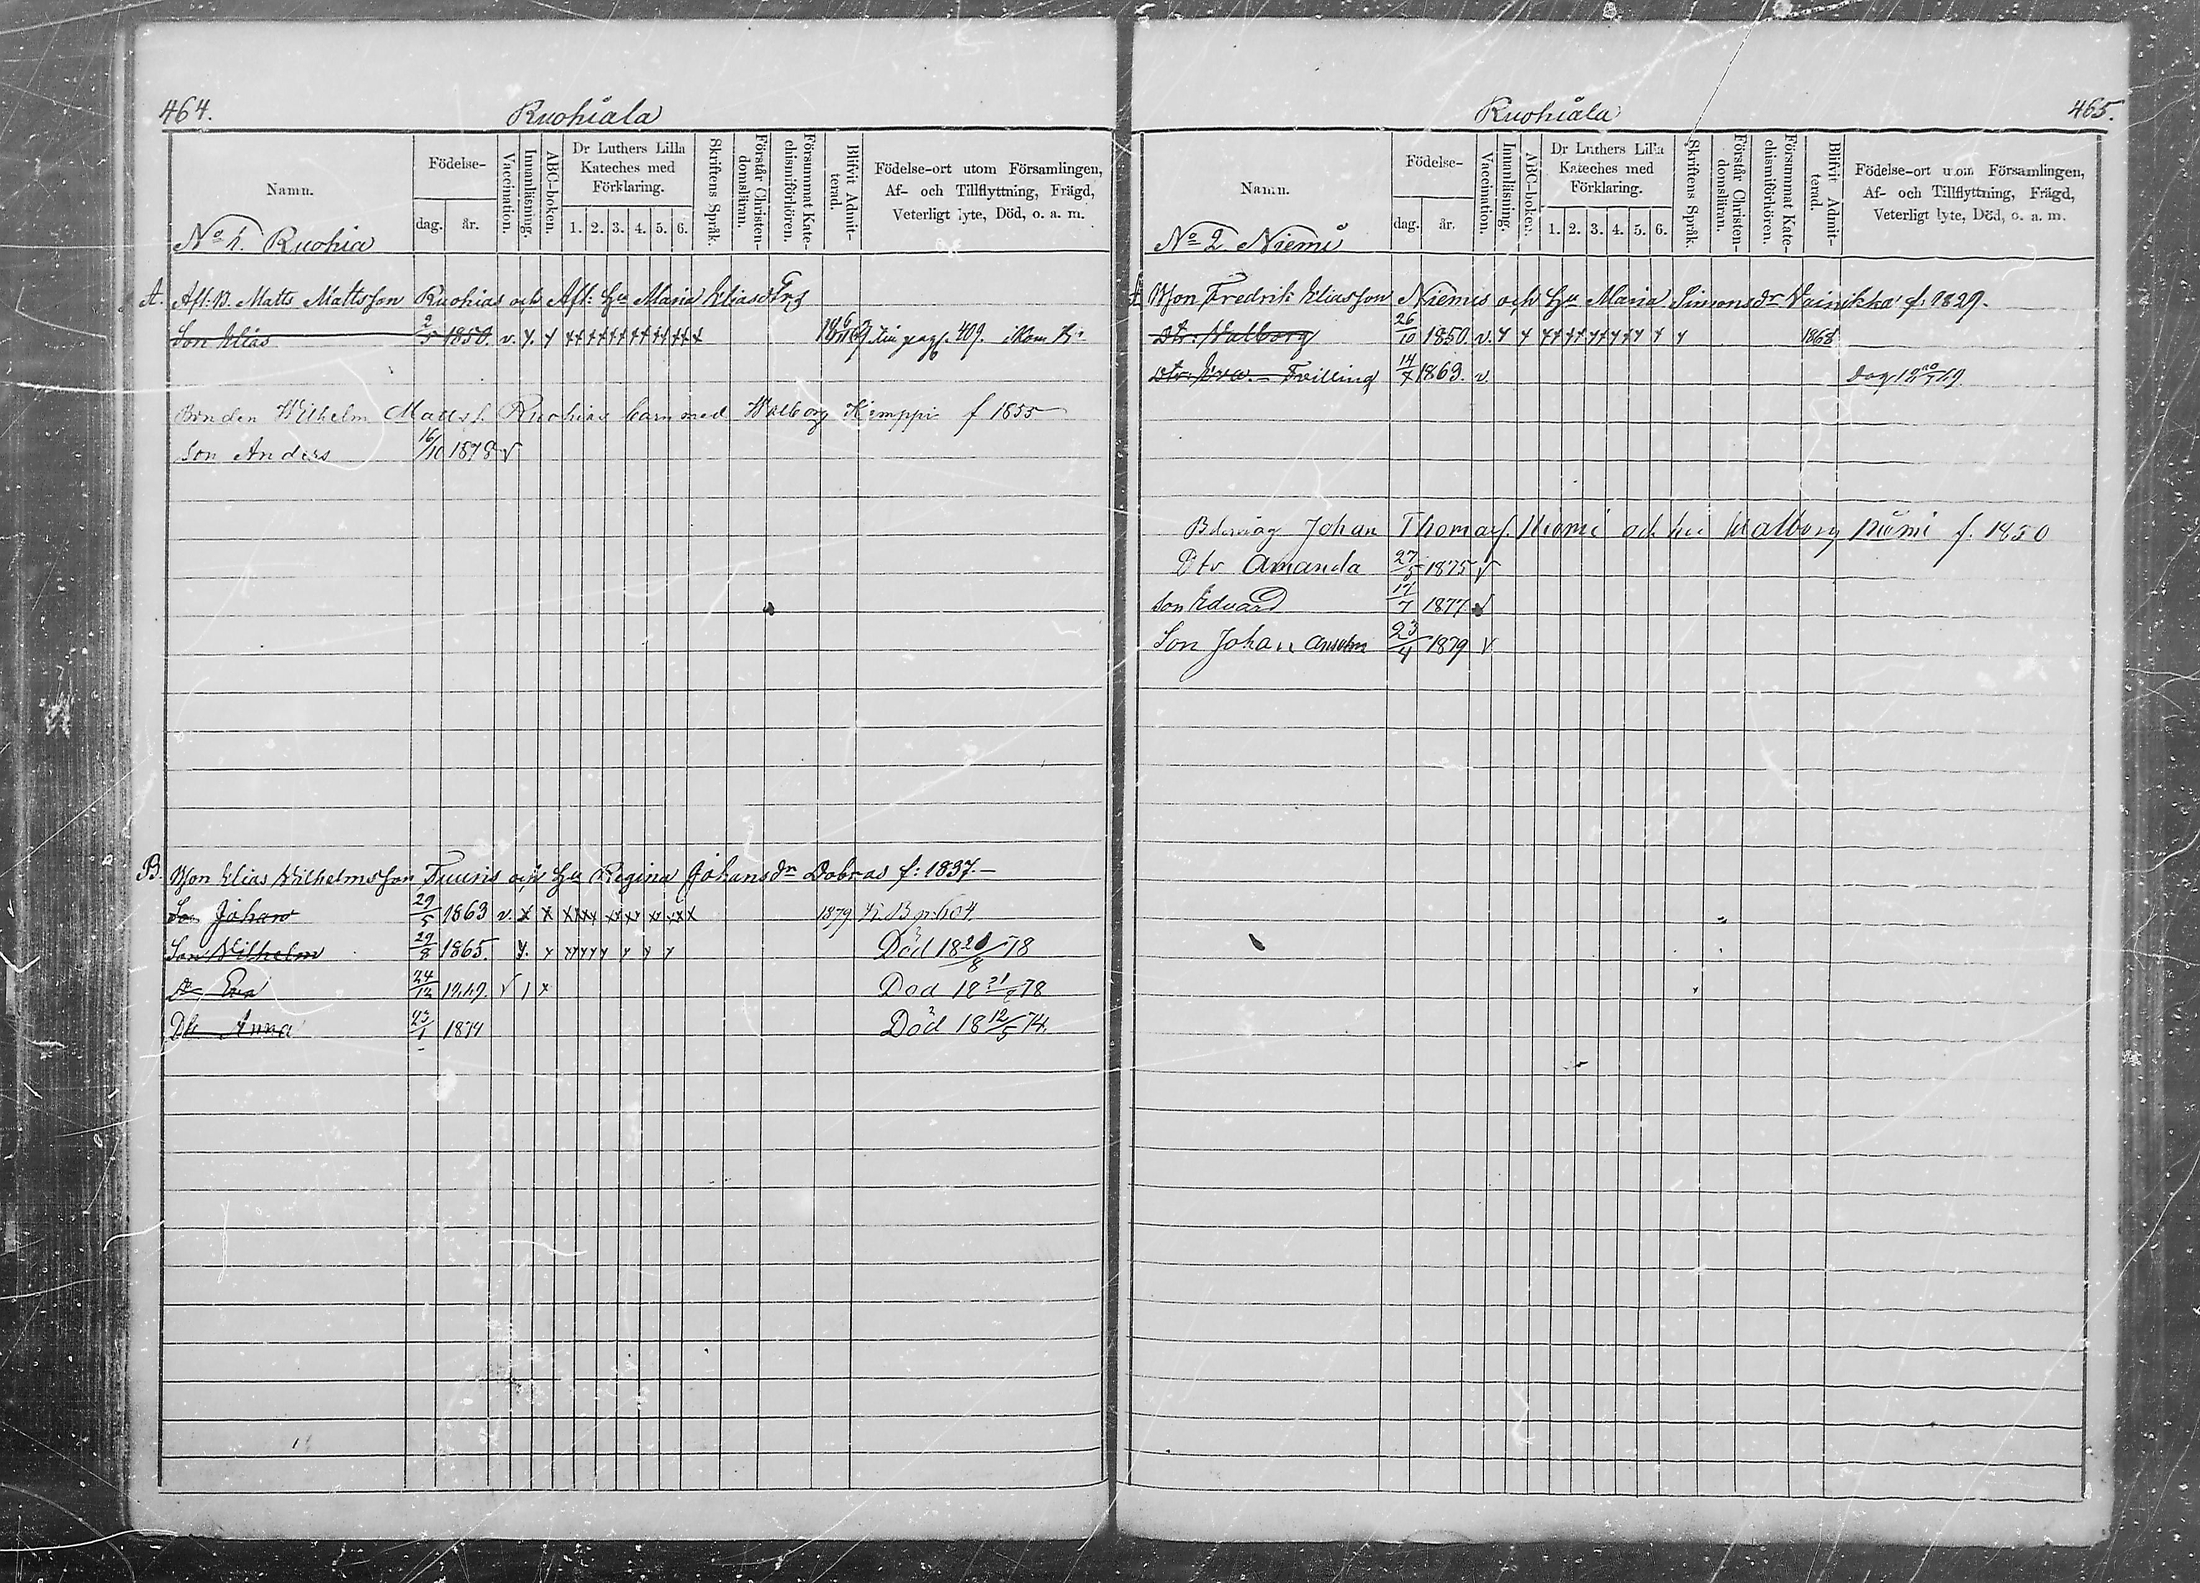 464. Ruohiala
Namn.
Födelse-
dag. år.
Vaccination.
Innanläsning.
ABC-boken.
Dr Luthers Lilla Kateches med Förklaring.
1. 2. 3. 4. 5. 6.
Skriftens Språk.
Förstår Christendomsläran.
Försummat Katechismiförhören.
Blifvit Admitterad.
Födelse-ort utom Församlingen, Af- och Tillflyttning, Frägd, Veterligt lyte, Död, o. a. m.
No 1. Ruohia
A. Afl. B. Matts Mattsson Ruohias och Afl: Hu Maria Eliasd
Son Elias 2/5 1850. v. pag. 409.
Bonden Wilhelm Matts. Ruohias barn med Walborg Kemppi f 1855
Son Anders 16/10 1878 v
B. Bon Elias Wilhelmsson Tuuris och Hu Regina Johansdr Dobras f: 1837.
Son Johan 29/5 1863 v. x x 1879
Son Wilhelm 29/8 1865. Död 18 /8 78
Dr Eva 24/12 v Död 18 78
Dtr Anna 23/1 1874 Död 18 12/5 74.
Ruohiala 465.
Namn.
Födelse-
dag. år.
Vaccination.
Innanläsning.
ABC-boken.
Dr Luthers Lilla Kateches med Förklaring.
1. 2. 3. 4. 5. 6.
Skriftens Språk.
Förstår Christendomsläran.
Försummat Katechismiförhören.
Blifvit Admitterad.
Födelse-ort utom Församlingen, Af- och Tillflyttning, Frägd, Veterligt lyte, Död, o. a. m.
No 2 Niemi
A Bon Fredrik Eliasson Niemis och Hu Maria Simonsdr Vainikka f. 1829.
Dtr. Walborg 26/10 1850. v. 1868
Dtr. Eva. - Tvilling 14/7 1863. v.
Johan Thomas. Niemi och hu Walborg Niemi f. 1850
Dtr Amanda 27/5 1875 v
Son Edvard 17/7 1877
Son Johan Anselm 23/4 1879 v